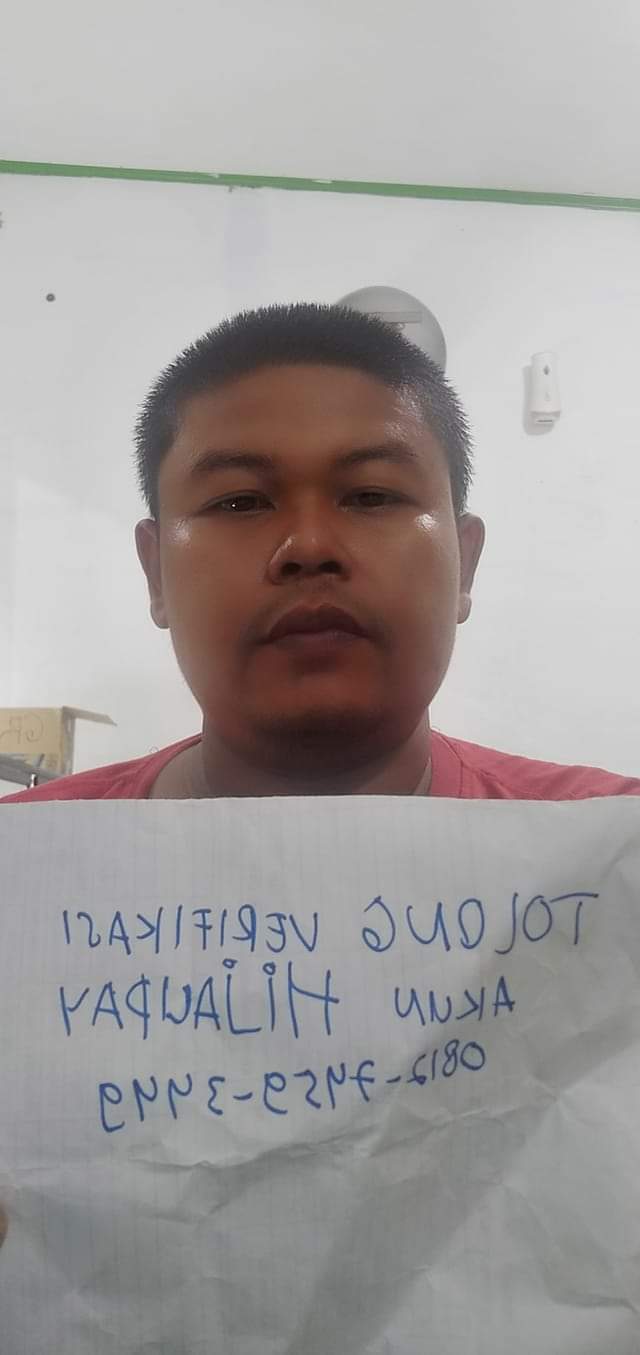 TOLONG VERIFIKASI
AKUN HIJAUPAY
0812-7459-3449